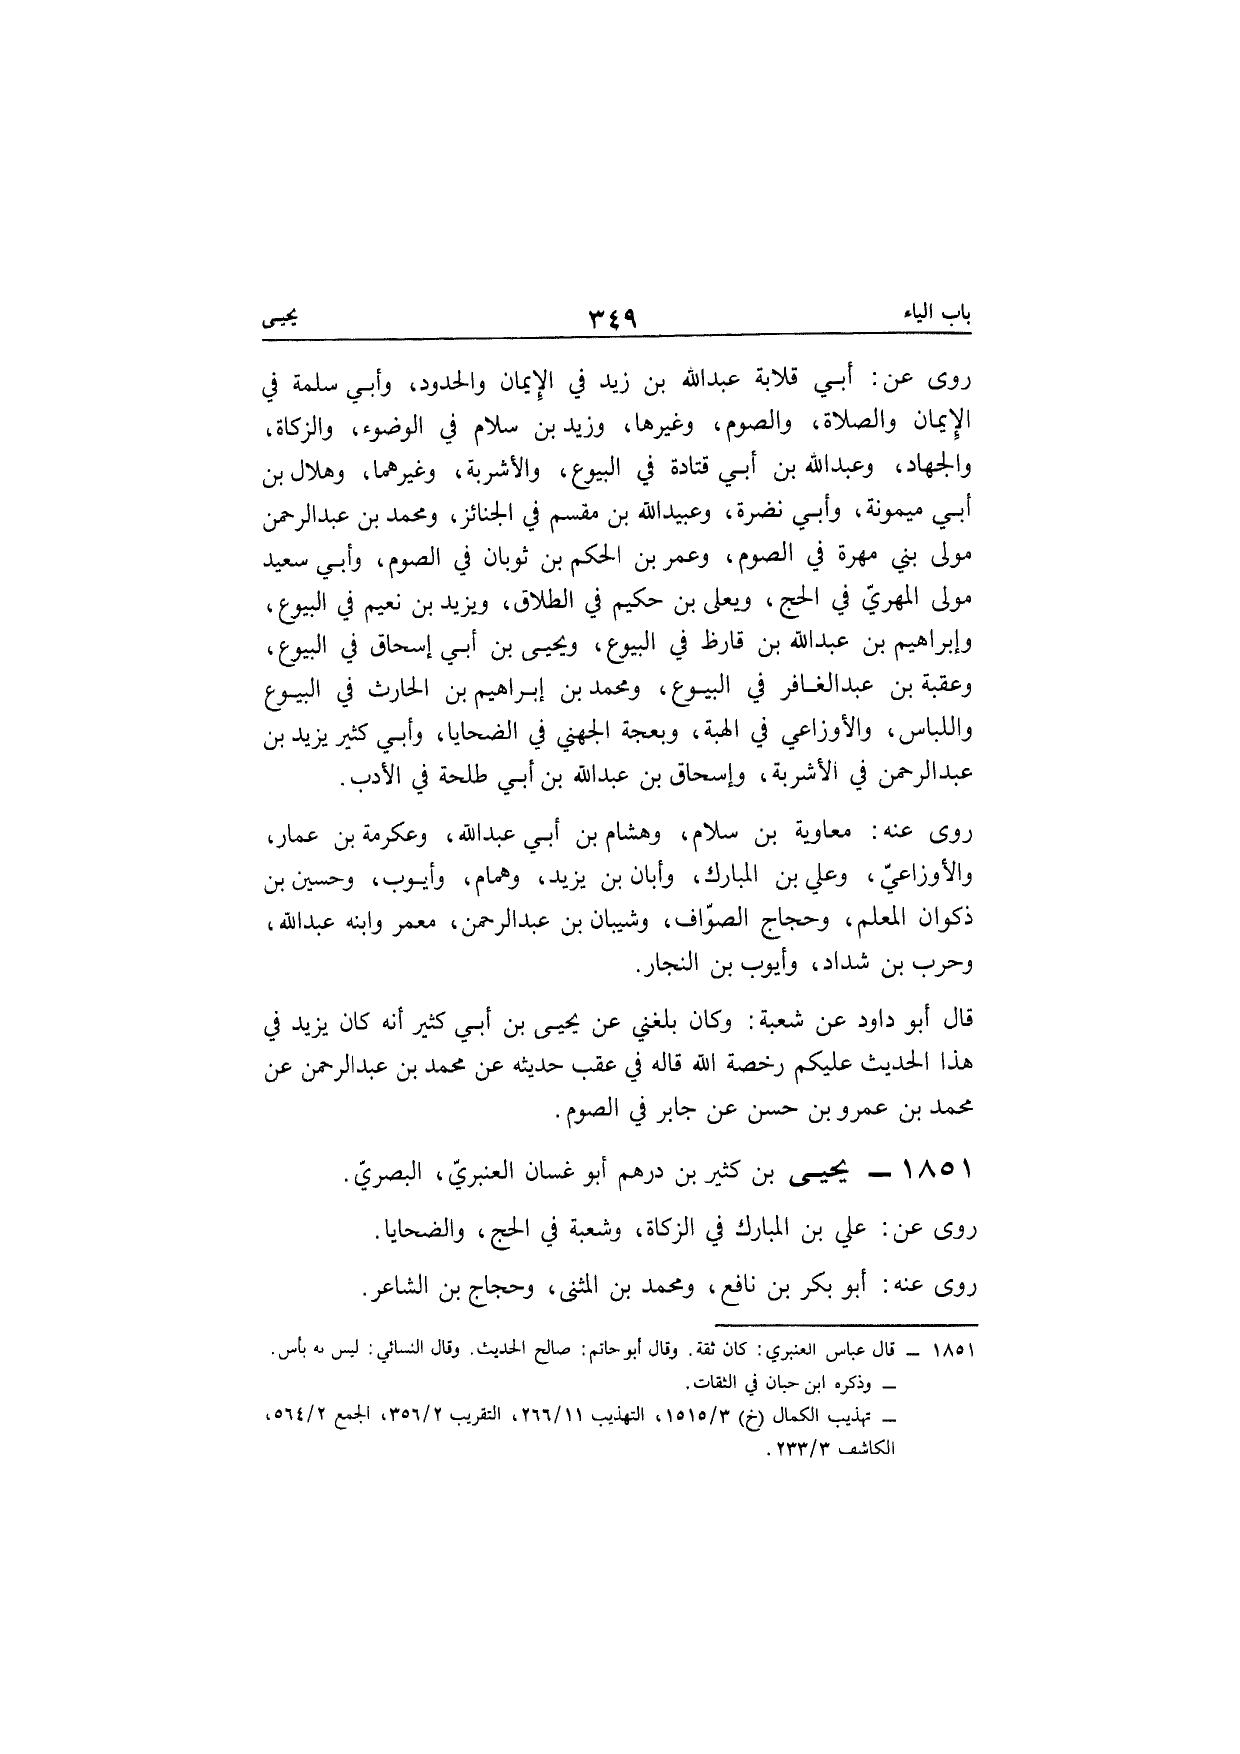 باب الياء ٣٤٩ يحيـى
روى عن: أبـي قلابة عبدالله بن زيد في الإيمان والحدود، وأبـي سلمة في
الإيمان والصلاة، والصوم، وغيرها، وزيد بن سلام في الوضوء، والزكاة،
والجهاد، وعبدالله بن أبـي قتادة في البيوع، والأشربة، وغيرهما، وهلال بن
أبـي ميمونة، وأبـي نضرة، وعبيدالله بن مقسم في الجنائز، ومحمد بن عبدالرحمن
مولى بني مهرة في الصوم، وعمر بن الحكم بن ثوبان في الصوم، وأبـي سعيد
مولى المهريّ في الحج، ويعلى بن حكيم في الطلاق، ويزيد بن نعيم في البيوع،
وإبراهيم بن عبدالله بن قارظ في البيوع، ويحيـى بن أبـي إسحاق في البيوع،
وعقبة بن عبدالغـافر في البيـوع، ومحمد بن إبـراهيم بن الحارث في البيـوع
واللباس، والأوزاعي في الهبة، وبعجة الجهني في الضحايا، وأبـي كثير يزيد بن
عبدالرحمن في الأشربة، وإسحاق بن عبدالله بن أبـي طلحة في الأدب.
روى عنه: معاوية بن سلام، وهشام بن أبـي عبدالله، وعكرمة بن عمار،
والأوزاعيّ، وعلي بن المبارك، وأبان بن يزيد، وهمام، وأيـوب، وحسين بن
ذكوان المعلم، وحجاج الصوّاف، وشيبان بن عبدالرحمن، معمر وابنه عبدالله،
وحرب بن شداد، وأيوب بن النجار.
قال أبو داود عن شعبة: وكان بلغني عن يحيـى بن أبـي كثير أنه كان يزيد في
هذا الحديث عليكم رخصة الله قاله في عقب حديثه عن محمد بن عبدالرحمن عن
محمد بن عمرو بن حسن عن جابر في الصوم.
١٨٥١ ـ يحيـى بن كثير بن درهم أبو غسان العنبريّ، البصريّ.
روى عن: علي بن المبارك في الزكاة، وشعبة في الحج، والضحايا.
روى عنه: أبو بكر بن نافع، ومحمد بن المثنى، وحجاج بن الشاعر.
١٨٥١ ـ قال عباس العنبري: كان ثقة. وقال أبو حاتم: صالح الحديث. وقال النسائي: ليس به بأس.
ـ وذكره ابن حبان في الثقات.
ـ تهذيب الكمال (خ) ١٥١٥/٣، التهذيب ٢٦٦/١١، التقريب ٣٥٦/٢، الجمع ٥٦٤/٢،
الكاشف ٢٣٣/٣.